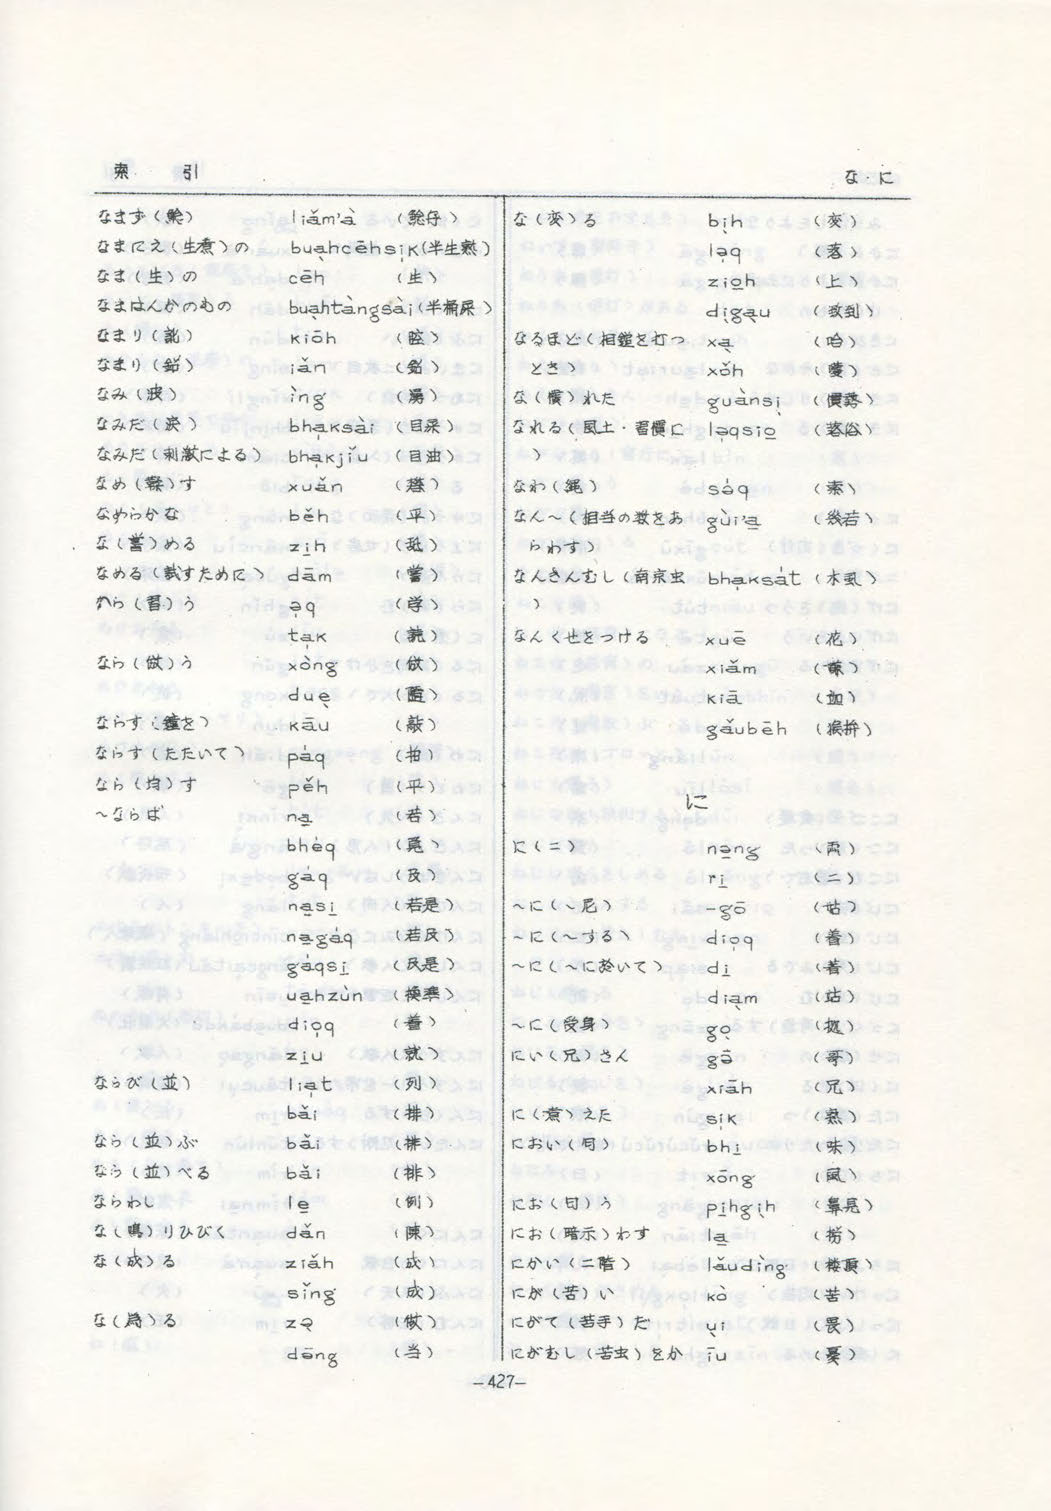 索引
な・に
なまず（鯰） liǎm'à （鯰仔）
なまにえ（生煮）の buạhcēhsi̍k （半生熟）
なま（生）の cēh （生）
なまはんかのもの buạhtàngsài （半桶屎）
なまり（訛） kiōh （腔）
なまり（鉛） iǎn （鉛）
なみ（波） ìng （湧）
なみだ（涙） bhạksài （目屎）
なみだ（刺激による） bhạkjǐu （目油）
なめ（鞣）す xuǎn
なめらかな běh （平）
な（嘗）める zi̱h （舐）
なめる（試すために） dām （嘗）
なら（習）う ə̣q （学）
tạk （読）
なら（倣）う xòng （倣）
duẹ
ならす（鐘を） kāu （敲）
ならす（たたいて） páq （拍）
なら（均）す pěh （平）
～ならば na̱ （若）
bhéq （尾）
gáq （及）
na̱si̱ （若是）
na̱gáq （若及）
gáqsi̱ （及是）
ua̱hzùn （換準）
diọq （着）
zi̱u （就）
ならび（並） liạt （列）
bǎi （排）
なら（並）ぶ bǎi （排）
なら（並）べる bǎi （排）
ならわし le̱ （例）
な（鳴）りひびく dǎn （陳）
な（成）る ziǎh （成）
sǐng （成）
な（為）る zə̣ （做）
dōng （当）
な（変）る bịh （変）
lạq （落）
zio̱h （上）
dịgạu （致到）
なるほど（相鎚を打つ xạ （哈）
とき） xǒh
な（慣）れた guànsị （慣落）
なれる（風土・習慣に lạqsio̱ （落俗）
）
なわ（縄） sóq （索）
なん～（相当の数をあ gùi'a̱ （幾若）
らわす）
なんきんむし（南京虫 bhạksát （木虱）
）
なんくせをつける xuē （花）
xiǎm
kiā
gǎubēh
に
に（二） nə̱ng （両）
ri̱ （二）
～に（～尼） -gō （姑）
～に（～する） diọq （着）
～に（～に於いて） di̱ （着）
diạm （站）
～に（受身） gọ
にい（兄）さん gō （哥）
xiāh （兄）
に（煮）えた si̍k （熟）
におい（匂） bhi̱ （味）
xōng （風）
にお（匂）う pi̱hgịh
にお（暗示）わす la̱
にかい（二階） lǎudìng （楼頂）
にが（苦）い kò （苦）
にがて（苦手）だ ụi （畏）
にがむし（苦虫）をか īu （憂）
—427—